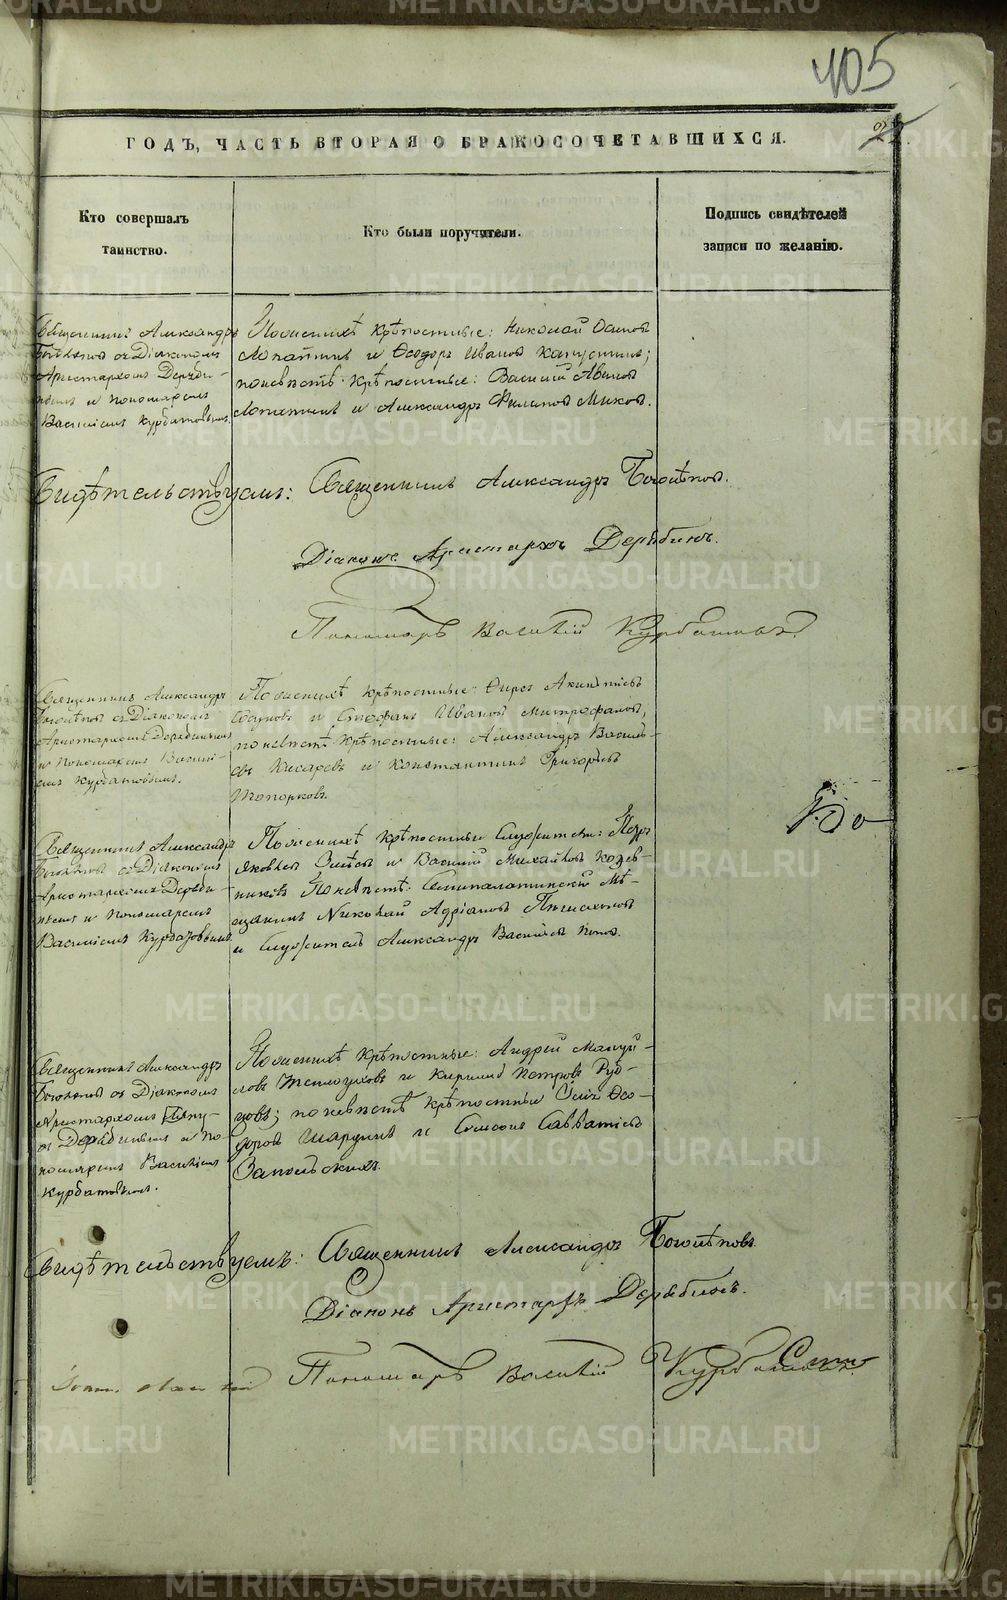 405
22
ГОДЪ, ЧАСТЬ ВТОРАЯ О БРАКОСОЧЕТАВШИХСЯ.
Кто совершалъ
таинство.
Кто были поручители.
Подпись свидѣтелей
записи по желанію.
Священникъ Александръ
съ Діакономъ
Аристархомъ Деряби-
нымъ и Пономаремъ
Василіемъ Курбатовымъ.
По женихѣ крѣпостные: Николай Осиповъ
Лопатинъ и Ѳеодоръ Ивановъ Капустинъ;
по невѣстѣ крѣпостные: Василій
и Александръ Филиповъ
Свидѣтельствуемъ: Священникъ Александръ
Діаконъ Аристархъ Дерябинъ.
Пономарь Василій Курбатовъ.
Священникъ Александръ
съ Діакономъ
Аристархомъ Дерябинымъ
и Пономаремъ Васили-
емъ Курбатовымъ.
По женихѣ крѣпостные:
и Стефанъ Ивановъ Митрофановъ,
по невѣстѣ крѣпостные: Александръ Василь-
евъ Кисаревъ и Константинъ Григорьевъ
Топорковъ.
Священникъ Александръ
съ Діакономъ
Аристархомъ Деряби-
нымъ и Пономаремъ
Василіемъ Курбатовымъ.
По женихѣ крѣпостные служители: Петръ
Яковлевъ и Василій Михайловъ Кожев-
никовъ По невѣстѣ: Семипалатинскій мѣ-
щанинъ Николай Адріановъ
и служитель Александръ Васильевъ Поповъ.
Священникъ Александръ
съ Діакономъ
Аристархомъ
Дерябинымъ и По-
номаремъ Василіемъ
Курбатовымъ.
По женихѣ крѣпостные: Андрей Мануй-
ловъ Теплоуховъ и Кирилъ Петровъ Руб-
цовъ; по невѣстѣ крѣпостные Ѳео-
доровъ Шардинъ и Симеонъ Савватіевъ
Запольскихъ.
Свидѣтельствуемъ: Священникъ Александръ
Діаконъ Аристархъ Дерябинъ.
Пономарь Василій Курбатовъ.
METRIKI.GASO-URAL.RU